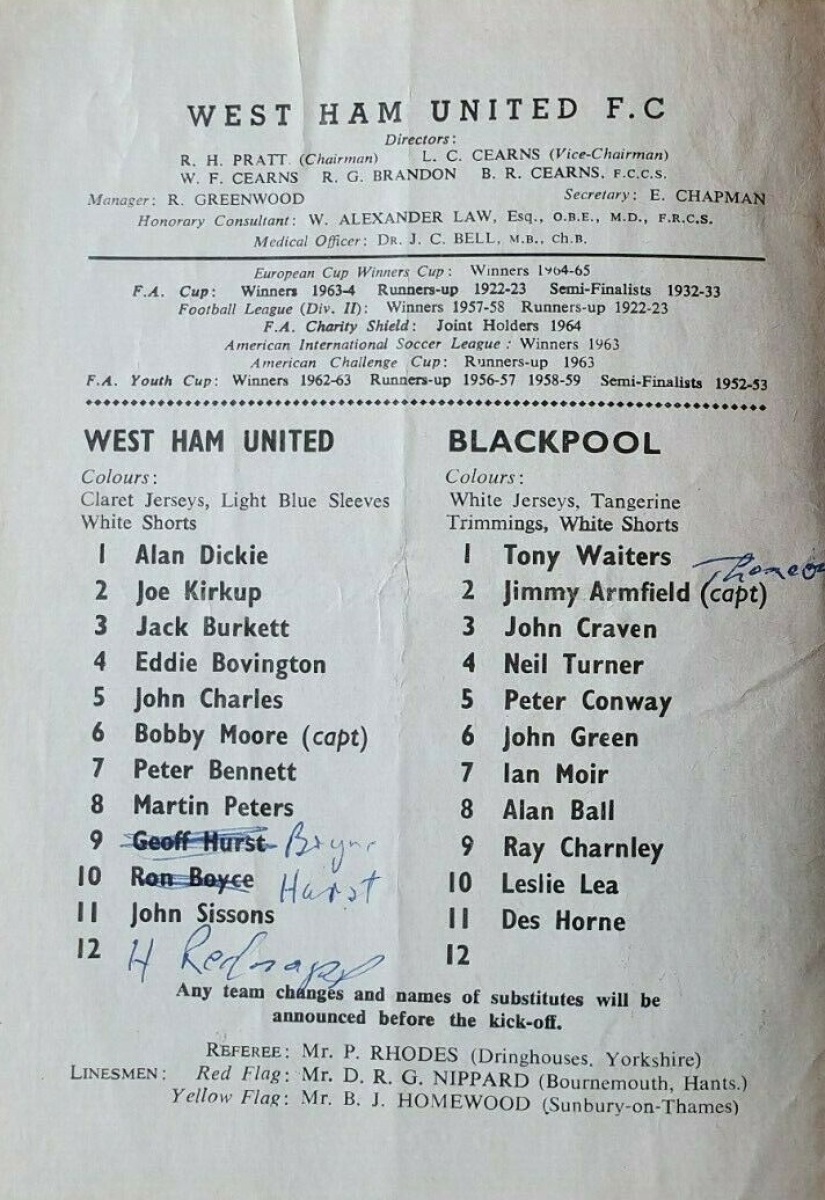 WEST HAM UNITED F.C
Directors:
R. H. PRATT (Chairman) L. C. CEARNS (Vice-Chairman)
W. F. CEARNS R. G. BRANDON B. R. CEARNS, F.C.C.S.
Manager: R. GREENWOOD Secretary: E. CHAPMAN
Honorary Consultant: W. ALEXANDER LAW, Esq., O.B.E., M.D., F.R.C.S.
Medical Officer: DR. J. C. BELL, M.B., Ch.B.
European Cup Winners Cup: Winners 1964-65
F.A. Cup: Winners 1963-4 Runners-up 1922-23 Semi-Finalists 1932-33
Football League (Div. II): Winners 1957-58 Runners-up 1922-23
F.A. Charity Shield: Joint Holders 1964
American International Soccer League: Winners 1963
American Challenge Cup: Runners-up 1963
F.A. Youth Cup: Winners 1962-63 Runners-up 1956-57 1958-59 Semi-Finalists 1952-53
WEST HAM UNITED
Colours:
Claret Jerseys, Light Blue Sleeves
White Shorts
1 Alan Dickie
2 Joe Kirkup
3 Jack Burkett
4 Eddie Bovington
5 John Charles
6 Bobby Moore (capt)
7 Peter Bennett
8 Martin Peters
9 Geoff Hurst Byrne
10 Ron Boyce Hurst
11 John Sissons
12 H Rednapp
BLACKPOOL
Colours:
White Jerseys, Tangerine
Trimmings, White Shorts
1 Tony Waiters
2 Jimmy Armfield (capt)
3 John Craven
4 Neil Turner
5 Peter Conway
6 John Green
7 Ian Moir
8 Alan Ball
9 Ray Charnley
10 Leslie Lea
11 Des Horne
12
Any team changes and names of substitutes will be
announced before the kick-off.
REFEREE: Mr. P. RHODES (Dringhouses, Yorkshire)
LINESMEN: Red Flag: Mr. D. R. G. NIPPARD (Bournemouth, Hants.)
Yellow Flag: Mr. B. J. HOMEWOOD (Sunbury-on-Thames)